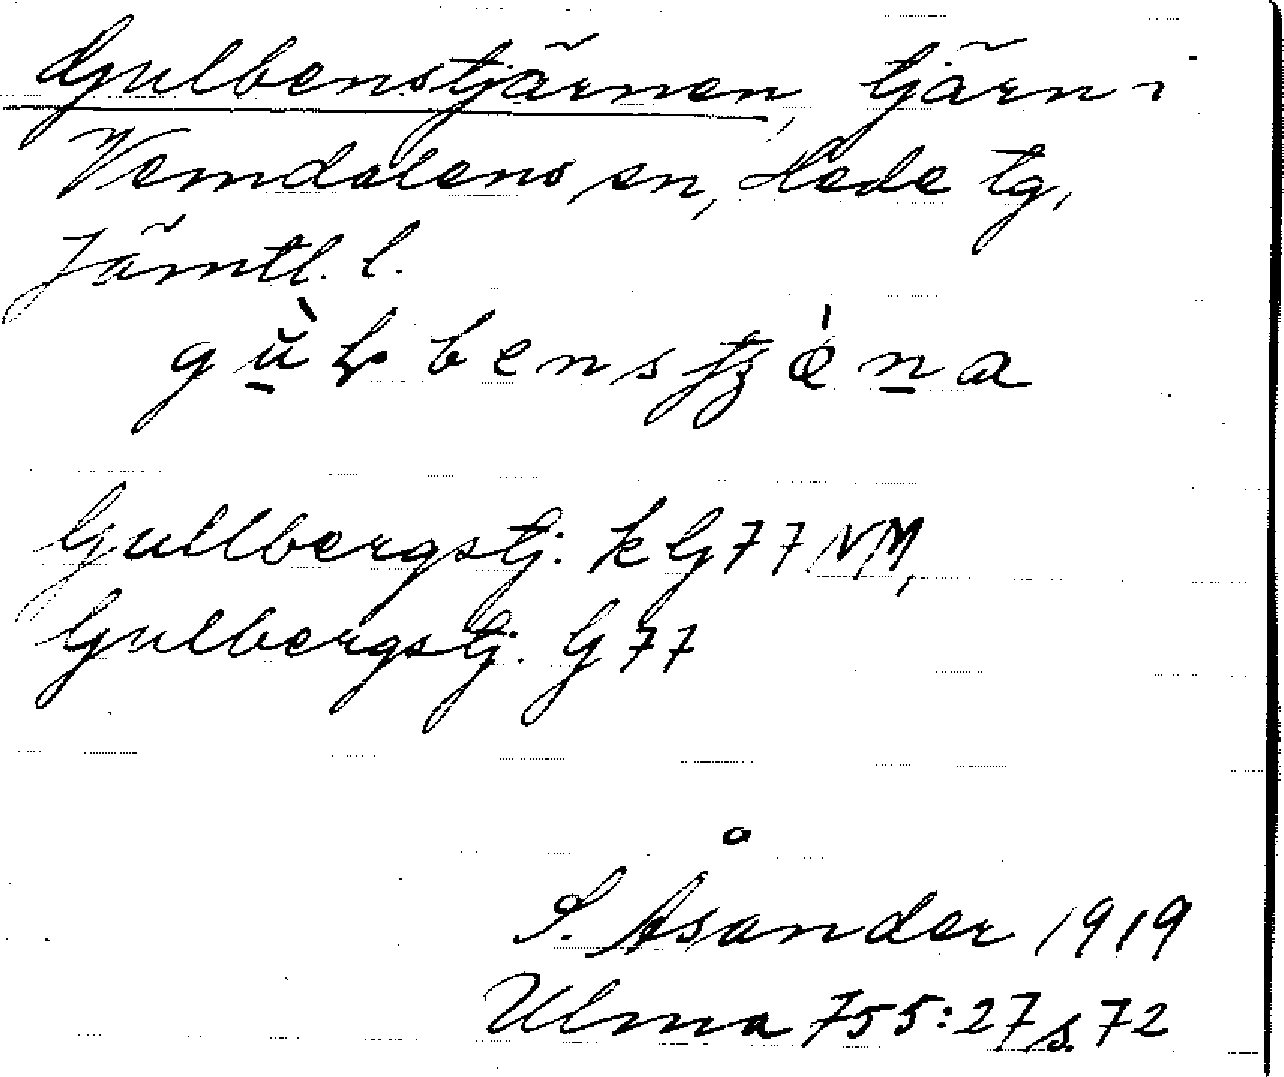 Gulbenstjärnen, tjärn i
Vemdalens sn, Hede tg,
Jämtl. l.
Gullbergstj. k G77 NM,
Gulbergstj. G77
S. Åsander 1919
Ulma 755:27 s. 72